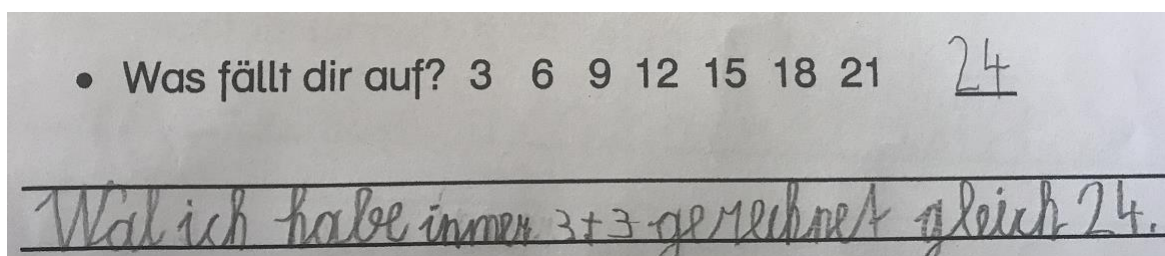 • Was fällt dir auf? 3 6 9 12 15 18 21 24
Wal ich habe immer 3+3 gerechnet gleich 24.